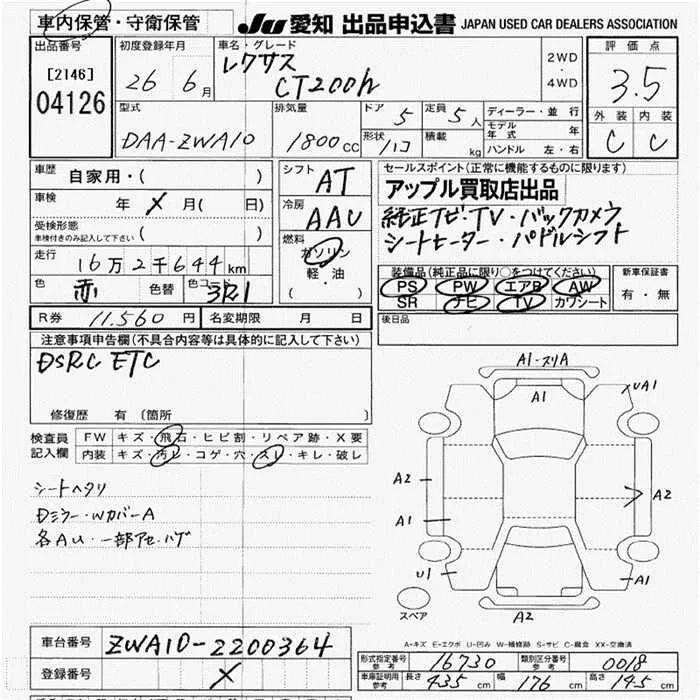 車内保管・守衛保管
JU 愛知 出品申込書 JAPAN USED CAR DEALERS ASSOCIATION
出品番号
[2146]
04126
初度登録年月
26 6月
車名・グレード
レクサス
CT200h
2WD
・
4WD
評価点
3.5
外装 内装
C C
型式
DAA-ZWA10
排気量
1800cc
ドア 5
定員 5人
形状 ハコ
積載 kg
ディーラー・並行
モデル年式 年
ハンドル 左・右
車歴 自家用・( )
車検 年 X 月( 日)
受検形態
車検付きのみ記入して下さい ( )
走行
16万2千644km
色 赤 色替 色コード 3R1
シフト AT
冷房 AAC
燃料
ガソリン
軽・油
( )
セールスポイント(正常に機能するものに限ります)
アップル買取店出品
純正ナビ・TV・バックカメラ
シートヒーター・パドルシフト
装備品(純正品に限り○をつけてください)
PS PW エアB AW
SR ナビ TV カワシート
新車保証書
有・無
R券 11,560円 名変期限 月 日
後日品
注意事項申告欄(不具合内容等は具体的に記入して下さい)
DSRC ETC
修復歴 有 〔箇所 〕
検査員記入欄
FW キズ・飛石・ヒビ割・リペア跡・X要
内装 キズ・汚レ・コゲ・穴・スレ・キレ・破レ
シートヘタリ
Dミラー・WカバーA
各AU・一部アセ・ハゲ
A1-スリA
A1
UA1
A2
A2
A1
U1
A1
A2
スペア
A-キズ E-エクボ U-凹み W-補修跡 S-サビ C-腐食 XX-交換済
車台番号 ZWA10-2200364
登録番号 X
形式指定番号 参考 16730
類別区分番号 参考 0018
車庫証明用 参考 長さ 435 cm 幅 176 cm 高さ 145 cm